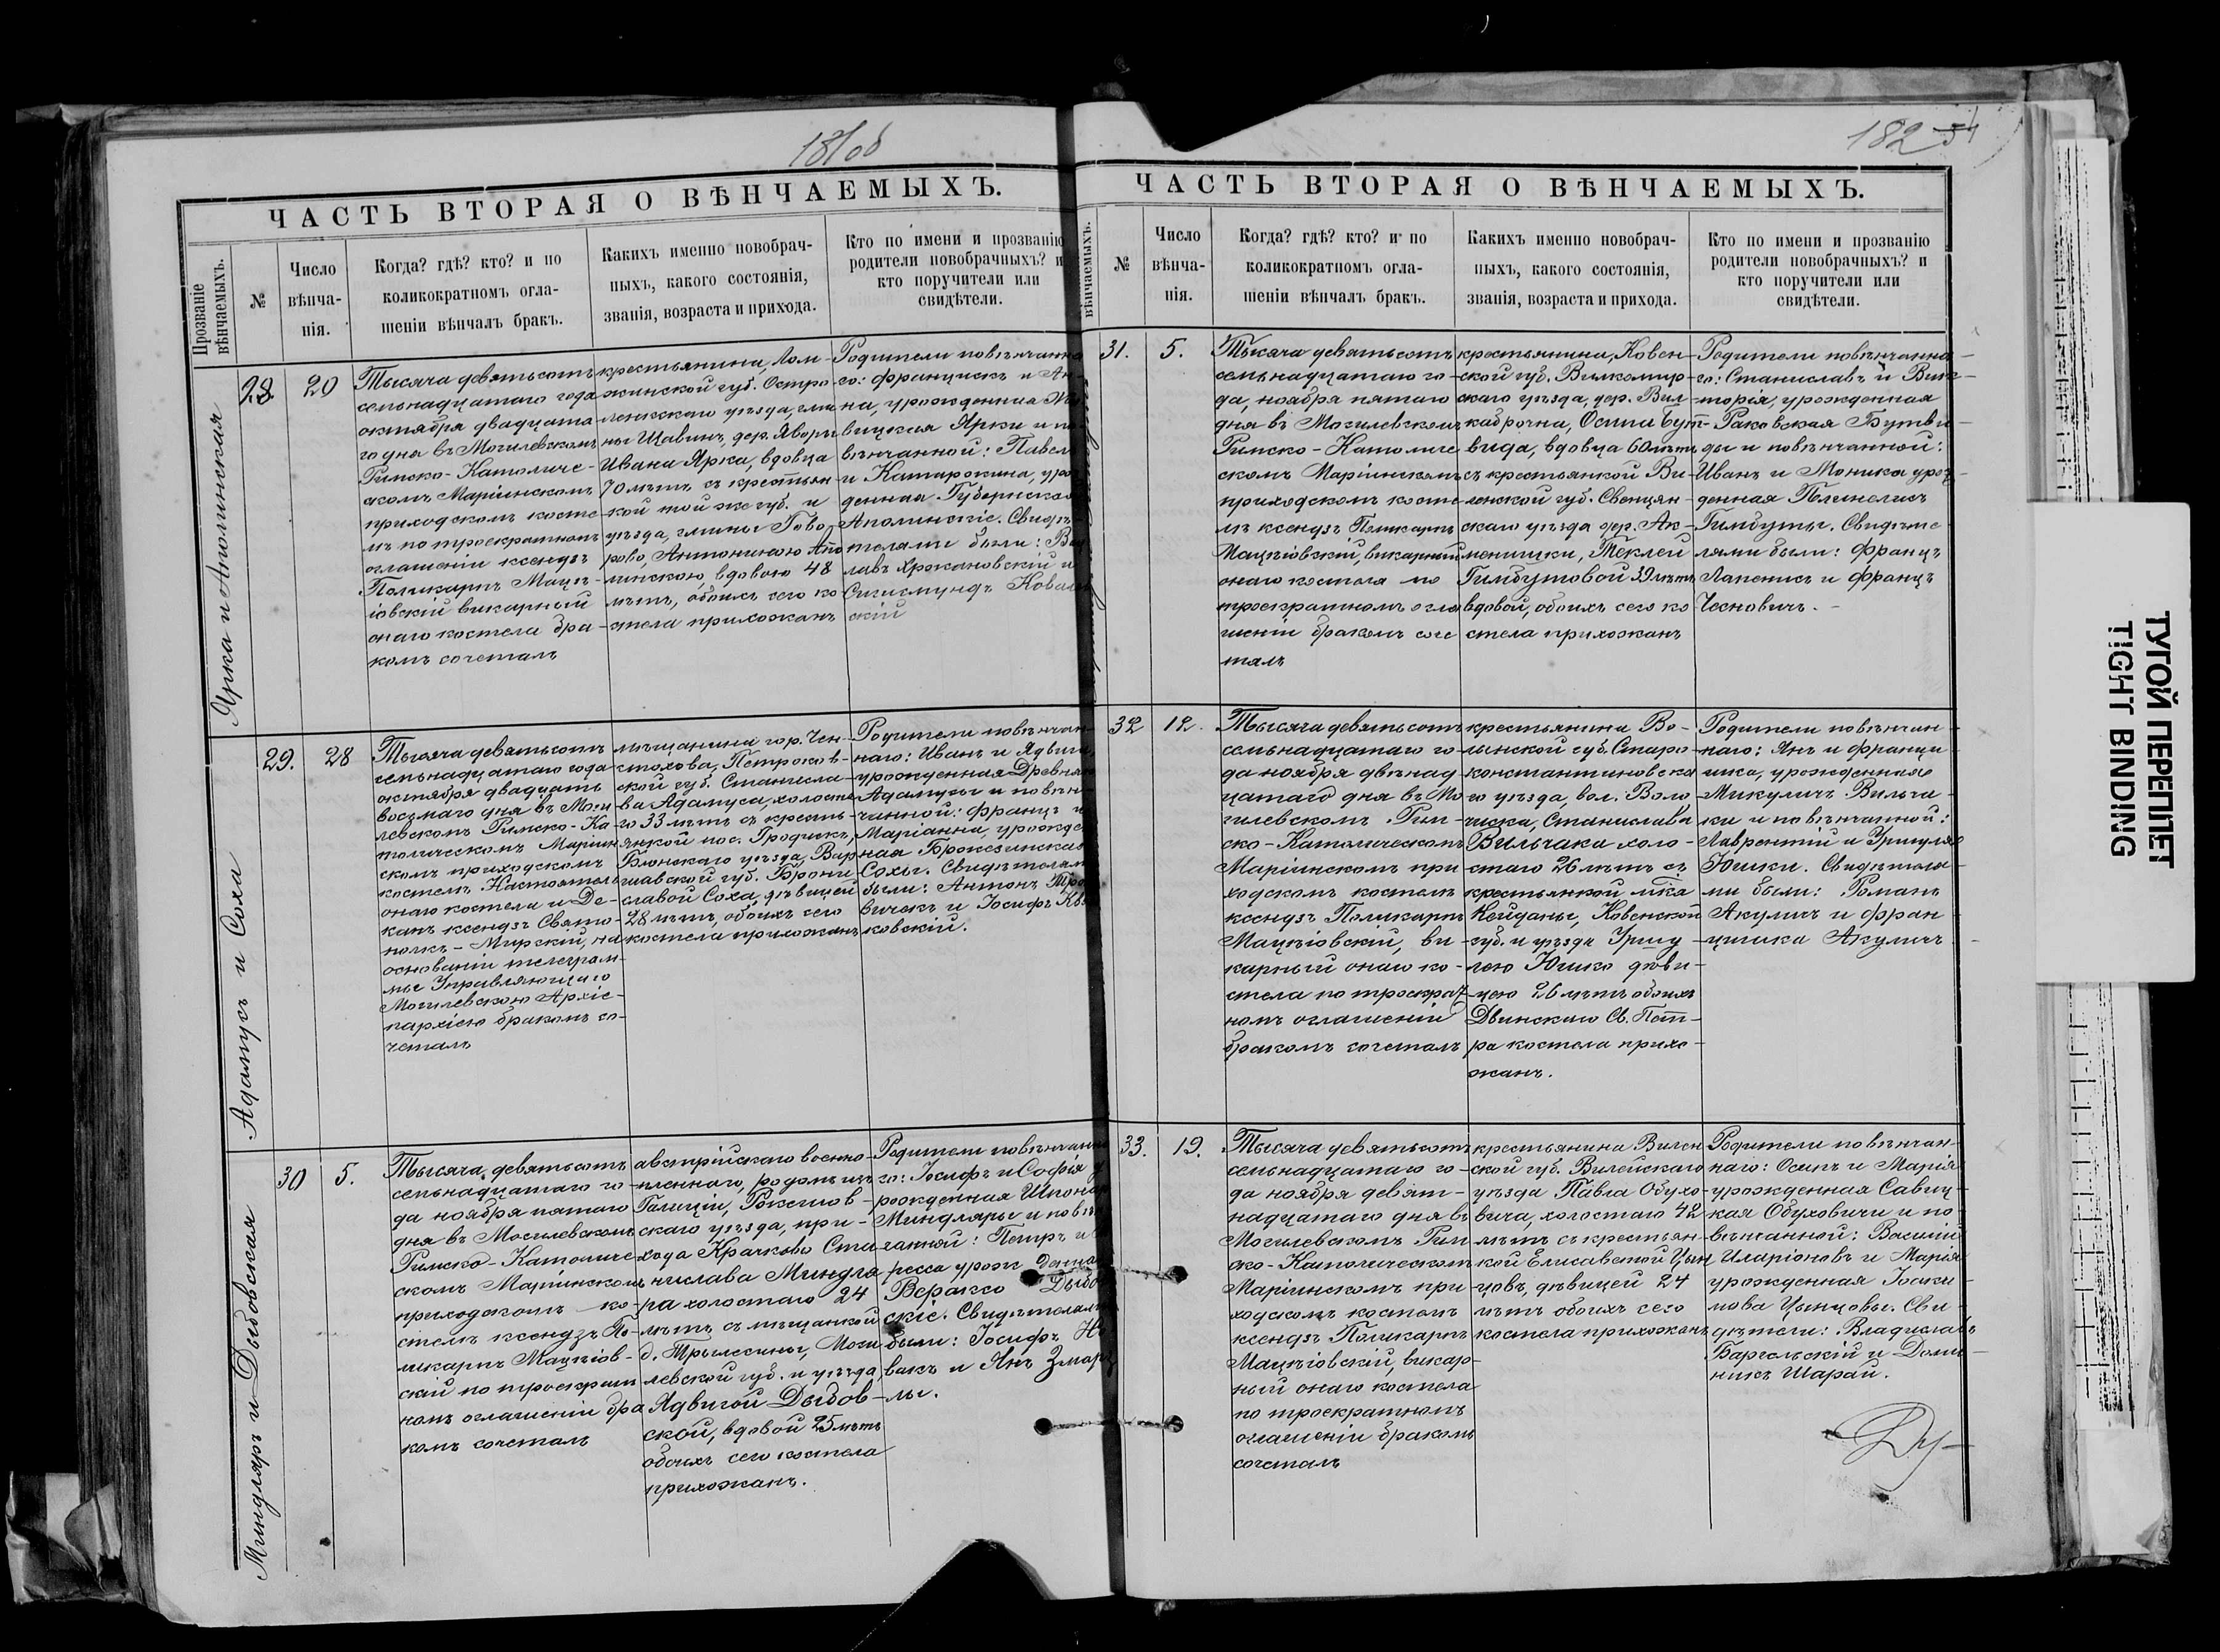 181об
ЧАСТЬ ВТОРАЯ О ВѢНЧАЕМЫХЪ.
Прозваніе
вѣнчаемыхъ.
№
Число
вѣнча-
нія.
Когда? гдѣ? кто? и по
коликократномъ огла-
шеніи вѣнчалъ бракъ.
Какихъ именно новобрач-
ныхъ, какого состоянія,
званія, возраста и прихода.
Кто по имени и прозванію
родители новобрачныхъ? и
кто поручители или
свидѣтели.
Ярка и Аполинская
28.
20
Тысяча девятьсотъ
семьнадцатаго года
октября двадцата-
го дня въ Могилевскомъ
Римско-Католиче-
скомъ Маріинскомъ
приходскомъ косте-
лѣ по троекратномъ
оглашеніи ксендзъ
Поликарпъ Мацѣ-
іовскій викарный
онаго костела бра-
комъ сочеталъ
крестьянина, Лом-
жинской губ. Остро-
ленкскаго уѣзда, гми-
ны Шавинъ, дер. Яворы
Ивана Ярка, вдовца
70 лѣтъ съ крестьян-
кой той же губ. и
уѣзда, гмины Гово-
рово, Антониною Апо
линскою, вдовою 48
лѣтъ, обоихъ сего ко
стела прихожанъ
Родители повѣнчанна
го: Францискъ и Ан-
на, урожденная
вицкая Ярки и по
вѣнчанной: Павел
и Катарожина, уро
денная Губернская
Аполинскіе. Свидѣ
телями были:
лавъ Хржановскій и
Сигисмундъ Коваль
скій
Адамусъ и Соха
29.
28
Тысяча девятьсотъ
семьнадцатаго года
октября двадцать
восьмаго дня въ Моги
левскомъ Римско-Ка-
толическомъ Маріин
скомъ приходскомъ
костелѣ Настоятель
онаго костела и Де-
канъ ксендзъ Свято-
полкъ-Мирскій, на
основаніи телеграм-
мы Управляющаго
Могилевскою Архіе-
пархіею бракомъ со-
четалъ
мѣщанина гор. Чен-
стохова, Петроков-
ской губ. Станисла-
ва Адамуса, холоста
го 33 лѣтъ съ кресть-
янкой пос. Гродискъ,
Блонскаго уѣзда, Вар
шавской губ. Брони
славой Соха, дѣвицей
28 лѣтъ, обоихъ сего
костела прихожанъ
Родители повѣнчан-
наго: Иванъ и Ядвига,
урожденная Древняк
Адамусы и повѣн
чанной: Францъ и
Маріанна, урожде
ная Брожезинская
Сохы. Свидѣтелями
были: Антонъ Тро
вичекъ и Іосифъ Кв
ковскій.
Миндляръ и Дыбовская
30
5.
Тысяча девятьсотъ
семьнадцатаго го-
да ноября пятаго
дня въ Могилевскомъ
Римско-Католиче
скомъ Маріинскомъ
приходскомъ ко-
стелѣ ксендзъ По-
ликарпъ Мацѣіов-
скій по троекрат
номъ оглашеніи бра
комъ сочеталъ
австрійскаго военно-
плѣннаго, родомъ изъ
Галиціи, Рокешов-
скаго уѣзда, при-
хода Крачково Ста
нислава Миндля
ра холостаго 24
лѣтъ съ мѣщанкой
д. Трылесины, Моги
левской губ. и уѣзда
Ядвигой Дыбов-
ской, вдовой 25 лѣтъ
обоихъ сего костела
прихожанъ.
Родители повѣнчанна
го: Іосифъ и Софія у
рожденная Шпонар
Миндляры и повѣн
чанной: Петръ и
ресса урожденная
Верамко Дыбов
скіе. Свидѣтелями
были: Іосифъ Но
вакъ и Янъ Змарз
лы.
182 54
ЧАСТЬ ВТОРАЯ О ВѢНЧАЕМЫХЪ.
вѣнчаемыхъ.
№
Число
вѣнча-
нія.
Когда? гдѣ? кто? и по
коликократномъ огла-
шеніи вѣнчалъ бракъ.
Какихъ именно новобрач-
ныхъ, какого состоянія,
званія, возраста и прихода.
Кто по имени и прозванію
родители новобрачныхъ? и
кто поручители или
свидѣтели.
31.
5.
Тысяча девятьсотъ
семьнадцатаго го-
да, ноября пятаго
дня въ Могилевскомъ
Римско-Католиче
скомъ Маріинскомъ
приходскомъ косте
лѣ ксендзъ Поликарпъ
Мацѣіовскій, викарный
онаго костела по
троекратномъ огла
шеніи бракомъ соче
талъ
крестьянина, Ковен-
ской губ. Вилкомир-
скаго уѣзда, дер. Вил-
каброчна, Осипа Бут-
вида, вдовца 60 лѣтъ
съ крестьянкой Ви-
ленской губ. Свенцян-
скаго уѣзда дер. Ак-
менишки, Теклей
Гимбутовой 39 лѣтъ
вдовой, обоихъ сего ко
стела прихожанъ
Родители повѣнчанна-
го: Станиславъ и Вик-
торія, урожденная
Раковская Бутви-
ды и повѣнчанной:
Иванъ и Моника урож-
денная Плинелисъ
Гимбуты. Свидѣте-
лями были: Францъ
Лапенисъ и Францъ
Чехновичъ.
32
12.
Тысяча девятьсотъ
семьнадцатаго го-
да ноября двѣнад-
цатаго дня въ Мо
гилевскомъ Рим-
ско-Католическомъ
Маріинскомъ при-
ходскомъ костелѣ
ксендзъ Поликарпъ
Мацѣіовскій, ви-
карный онаго ко-
стела по троекрат-
номъ оглашеніи
бракомъ сочеталъ
крестьянина Во-
лынской губ. Старо-
константиновска
го уѣзда, вол. Воло-
чиска, Станислава
Вильчака холо-
стаго 26 лѣтъ съ
крестьянкой м-ка
Кейданы, Ковенской
губ. и уѣзда Уршу-
лею Юшко дѣви-
цею 26 лѣтъ обоихъ
Двинскаго Св. Пет-
ра костела прихо-
жанъ.
Родители повѣнчан-
наго: Янъ и Франци
шка, урожденная
Микуличъ Вильча-
ки и повѣнчанной:
Лаврентій и Уршуля
Юшки. Свидѣтеля-
ми были: Романъ
Акуличъ и Фран
цишка Акуличъ
33.
19.
Тысяча девятьсотъ
семьнадцатаго го-
да ноября девят-
надцатаго дня въ
Могилевскомъ Рим
ско-Католическомъ
Маріинскомъ при
ходскомъ костелѣ
ксендзъ Поликарпъ
Мацѣіовскій, викар-
ный онаго костела
по троекратномъ
оглашеніи бракомъ
сочеталъ
крестьянина Вилен
ской губ. Вилейскаго
уѣзда Павла Обухо-
вича, холостаго 42
лѣтъ съ крестьян-
кой Елисаветой Цын
цовъ, дѣвицей 24
лѣтъ обоихъ сего
костела прихожанъ
Родители повѣнчан-
наго: Осипъ и Марія
урожденная Савиц-
кая Обуховичи и по-
вѣнчанной: Василій
Иларіоновъ и Марія
урожденная Іоаки-
мова Цынцовы. Сви-
дѣтели: Владиславъ
Баргельскій и Доми-
никъ Шарай.
ТУГОЙ ПЕРЕПЛЕТ
TIGHT BINDING